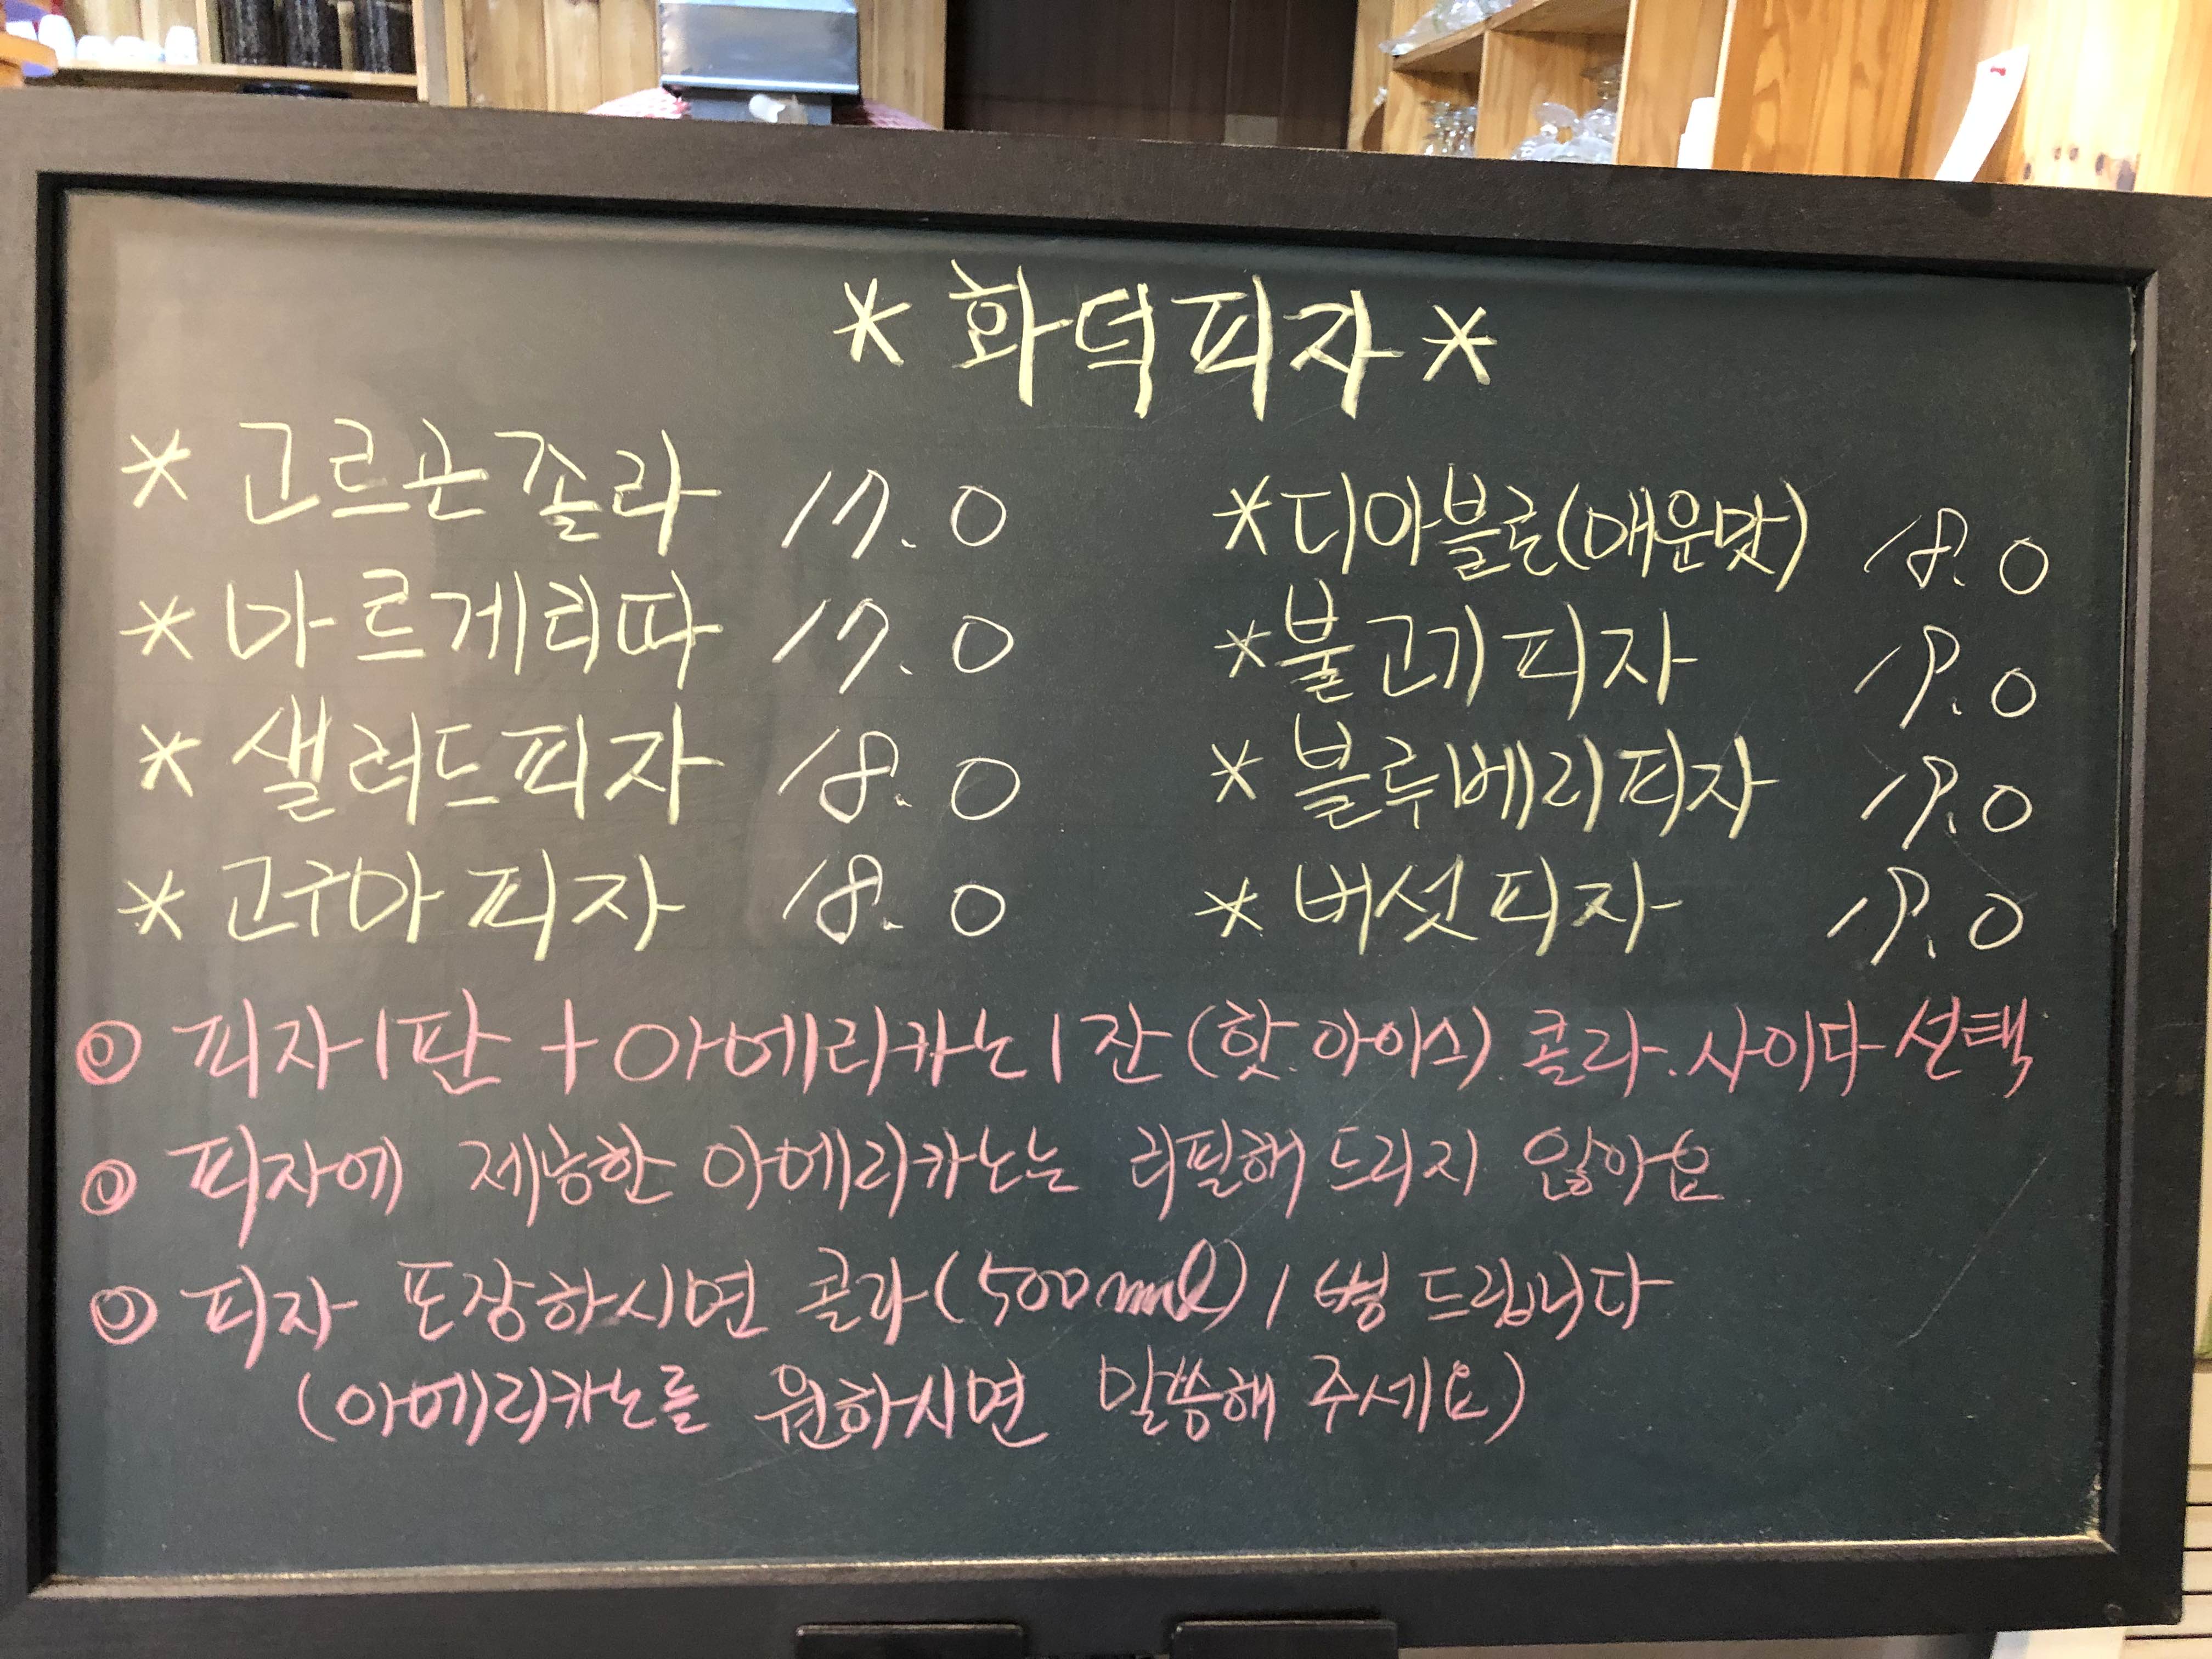 * 화덕피자 *
* 고르곤졸라 17.0
* 마르게리따 17.0
* 샐러드피자 18.0
* 고구마피자 18.0
* 디아블로(매운맛) 18.0
* 불고기피자 19.0
* 블루베리피자 19.0
* 버섯피자 19.0
◎ 피자1판 + 아메리카노1잔 (핫.아이스) 콜라.사이다 선택
◎ 피자에 제공한 아메리카노는 리필해 드리지 않아요
◎ 피자 포장하시면 콜라(500ml) 1병 드립니다
(아메리카노를 원하시면 말씀해 주세요)